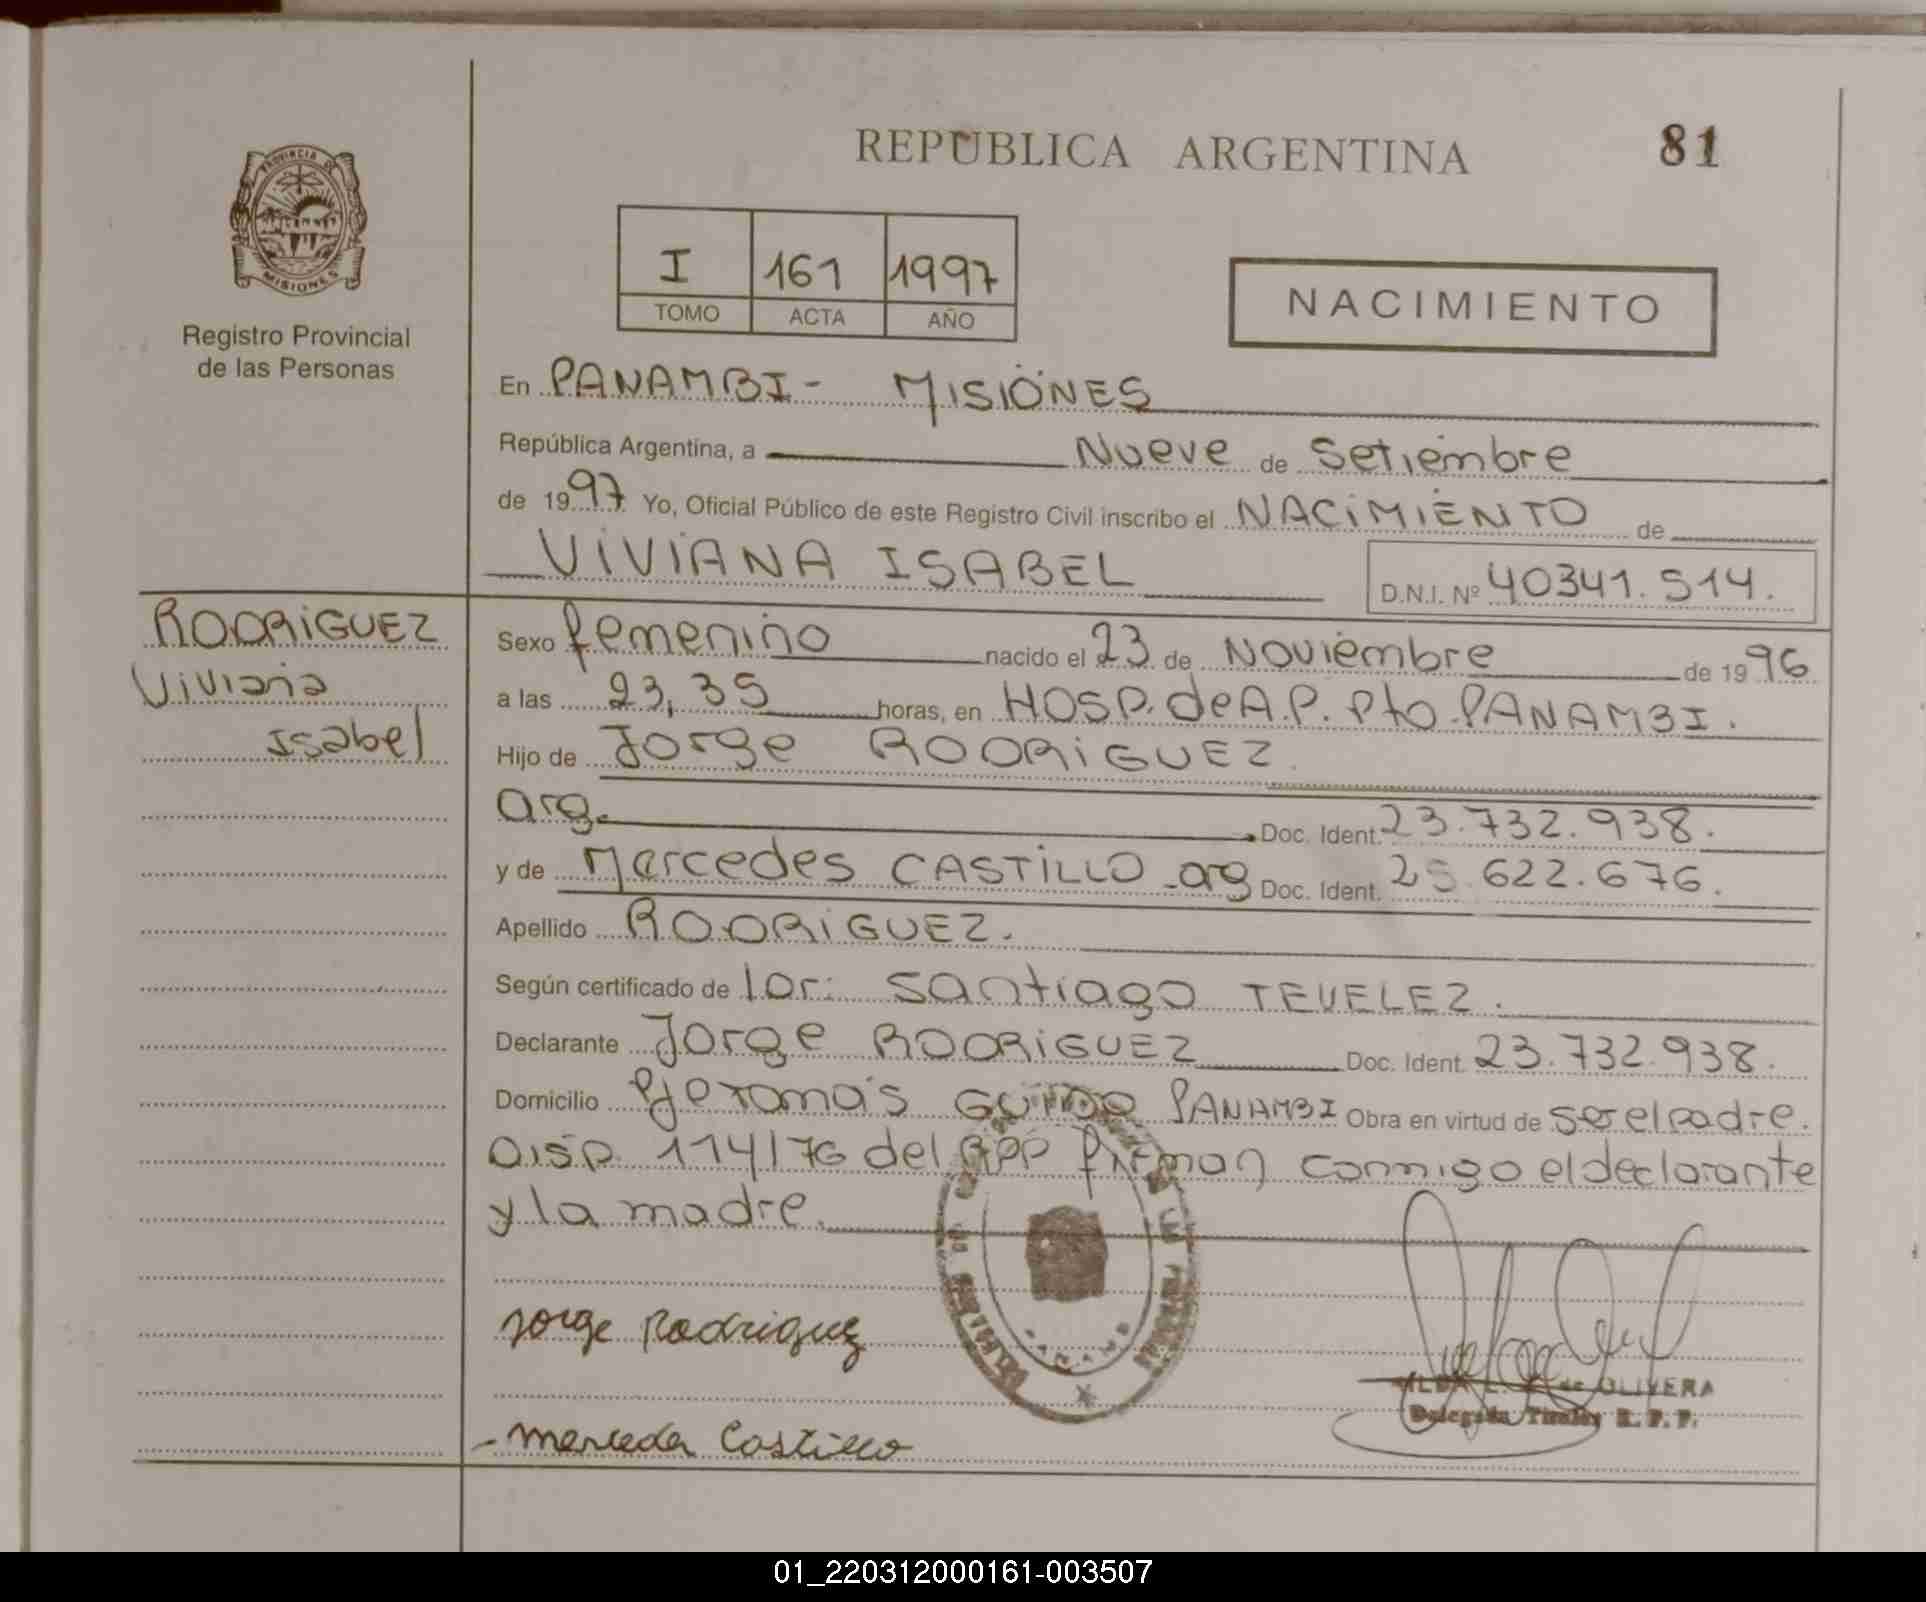 REPUBLICA ARGENTINA 81
PROVINCIA DE
MISIONES
Registro Provincial
de las Personas
I 161 1997
TOMO ACTA AÑO
NACIMIENTO
En PANAMBI - MISIONES
República Argentina, a Nueve de Setiembre
de 1997 Yo, Oficial Público de este Registro Civil inscribo el NACIMIENTO de
VIVIANA ISABEL D.N.I. Nº 40341.514.
RODRIGUEZ
Viviana
Isabel
Sexo femenino nacido el 23 de Noviembre de 1996
a las 23,35 horas, en HOSP. de A.P. Pto PANAMBI.
Hijo de Jorge RODRIGUEZ
arg. Doc. Ident. 23.732.938.
y de Mercedes CASTILLO - arg Doc. Ident. 25.622.676.
Apellido RODRIGUEZ.
Según certificado de Santiago TEVELEZ.
Declarante Jorge RODRIGUEZ Doc. Ident. 23.732.938.
Domicilio Pje Tomas GUIDO PANAMBI Obra en virtud de ser el padre.
DISP. 114/76 del RPP firman conmigo el declarante
y la madre.
Jorge Rodriguez
- Mercedes Castillo
de OLIVERA
Delegada Titular R. P. P.
01_220312000161-003507